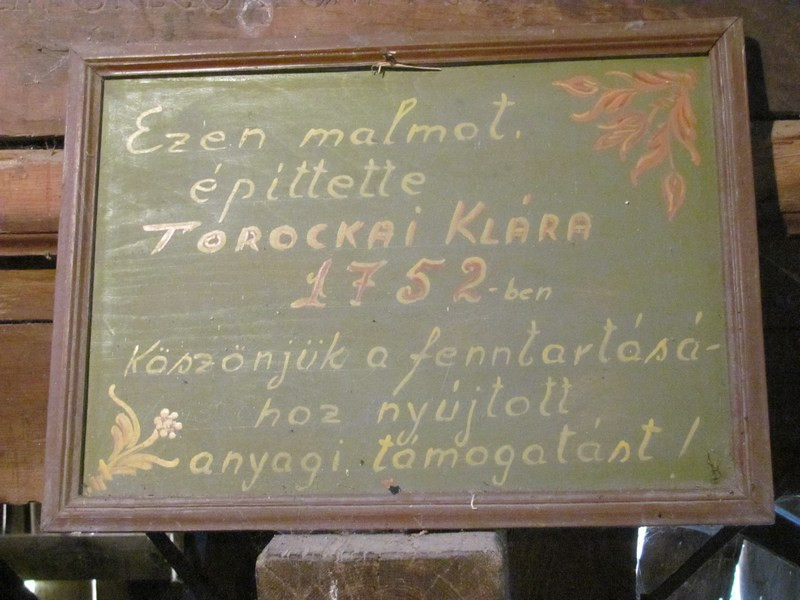 Ezen malmot.
épittette
TOROCKAI KLÁRA
1752-ben
Köszönjük a fenntartásá-
hoz nyújtott
anyagi támogatást!